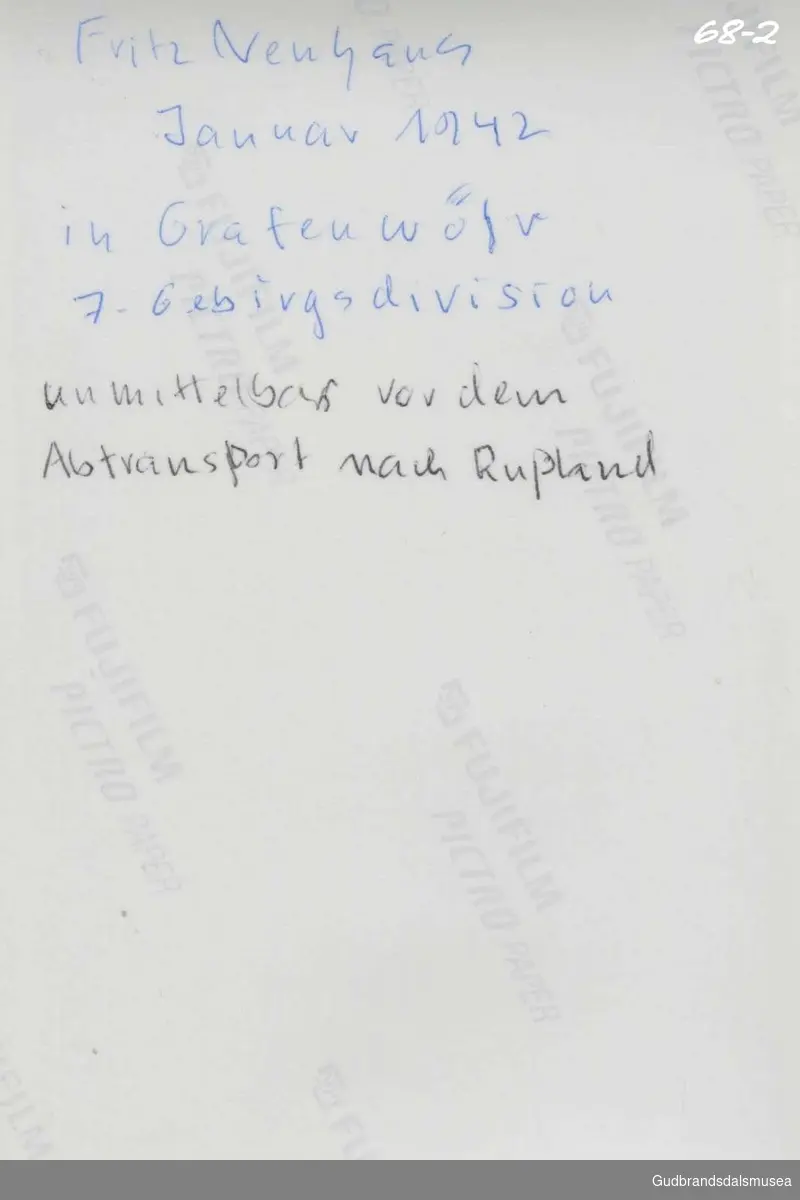 68-2
Fritz Neuhaus
Januar 1942
in Grafenwöhr
7. Gebirgsdivision
unmittelbar vor dem
Abtransport nach Rußland
FUJIFILM
PICTRO PAPER
FUJIFILM
PICTRO PAPER
FUJIFILM
PICTRO PAPER
FUJIFILM
PICTRO PAPER
FUJIFILM
PICTRO PAPER
Gudbrandsdalsmusea